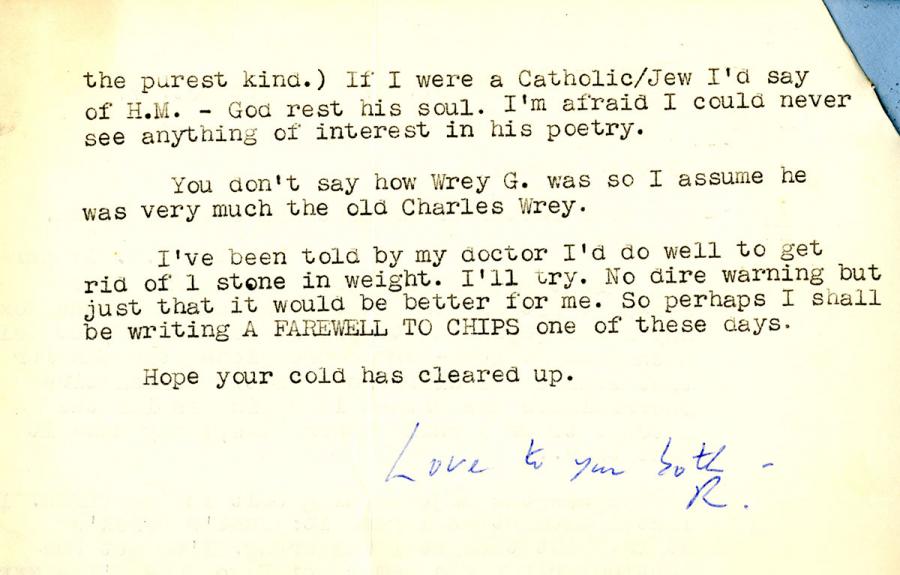 the purest kind.) If I were a Catholic/Jew I'd say
of H.M. - God rest his soul. I'm afraid I could never
see anything of interest in his poetry.
You don't say how Wrey G. was so I assume he
was very much the old Charles Wrey.
I've been told by my doctor I'd do well to get
rid of 1 stone in weight. I'll try. No dire warning but
just that it would be better for me. So perhaps I shall
be writing A FAREWELL TO CHIPS one of these days.
Hope your cold has cleared up.
Love to you both -
R.